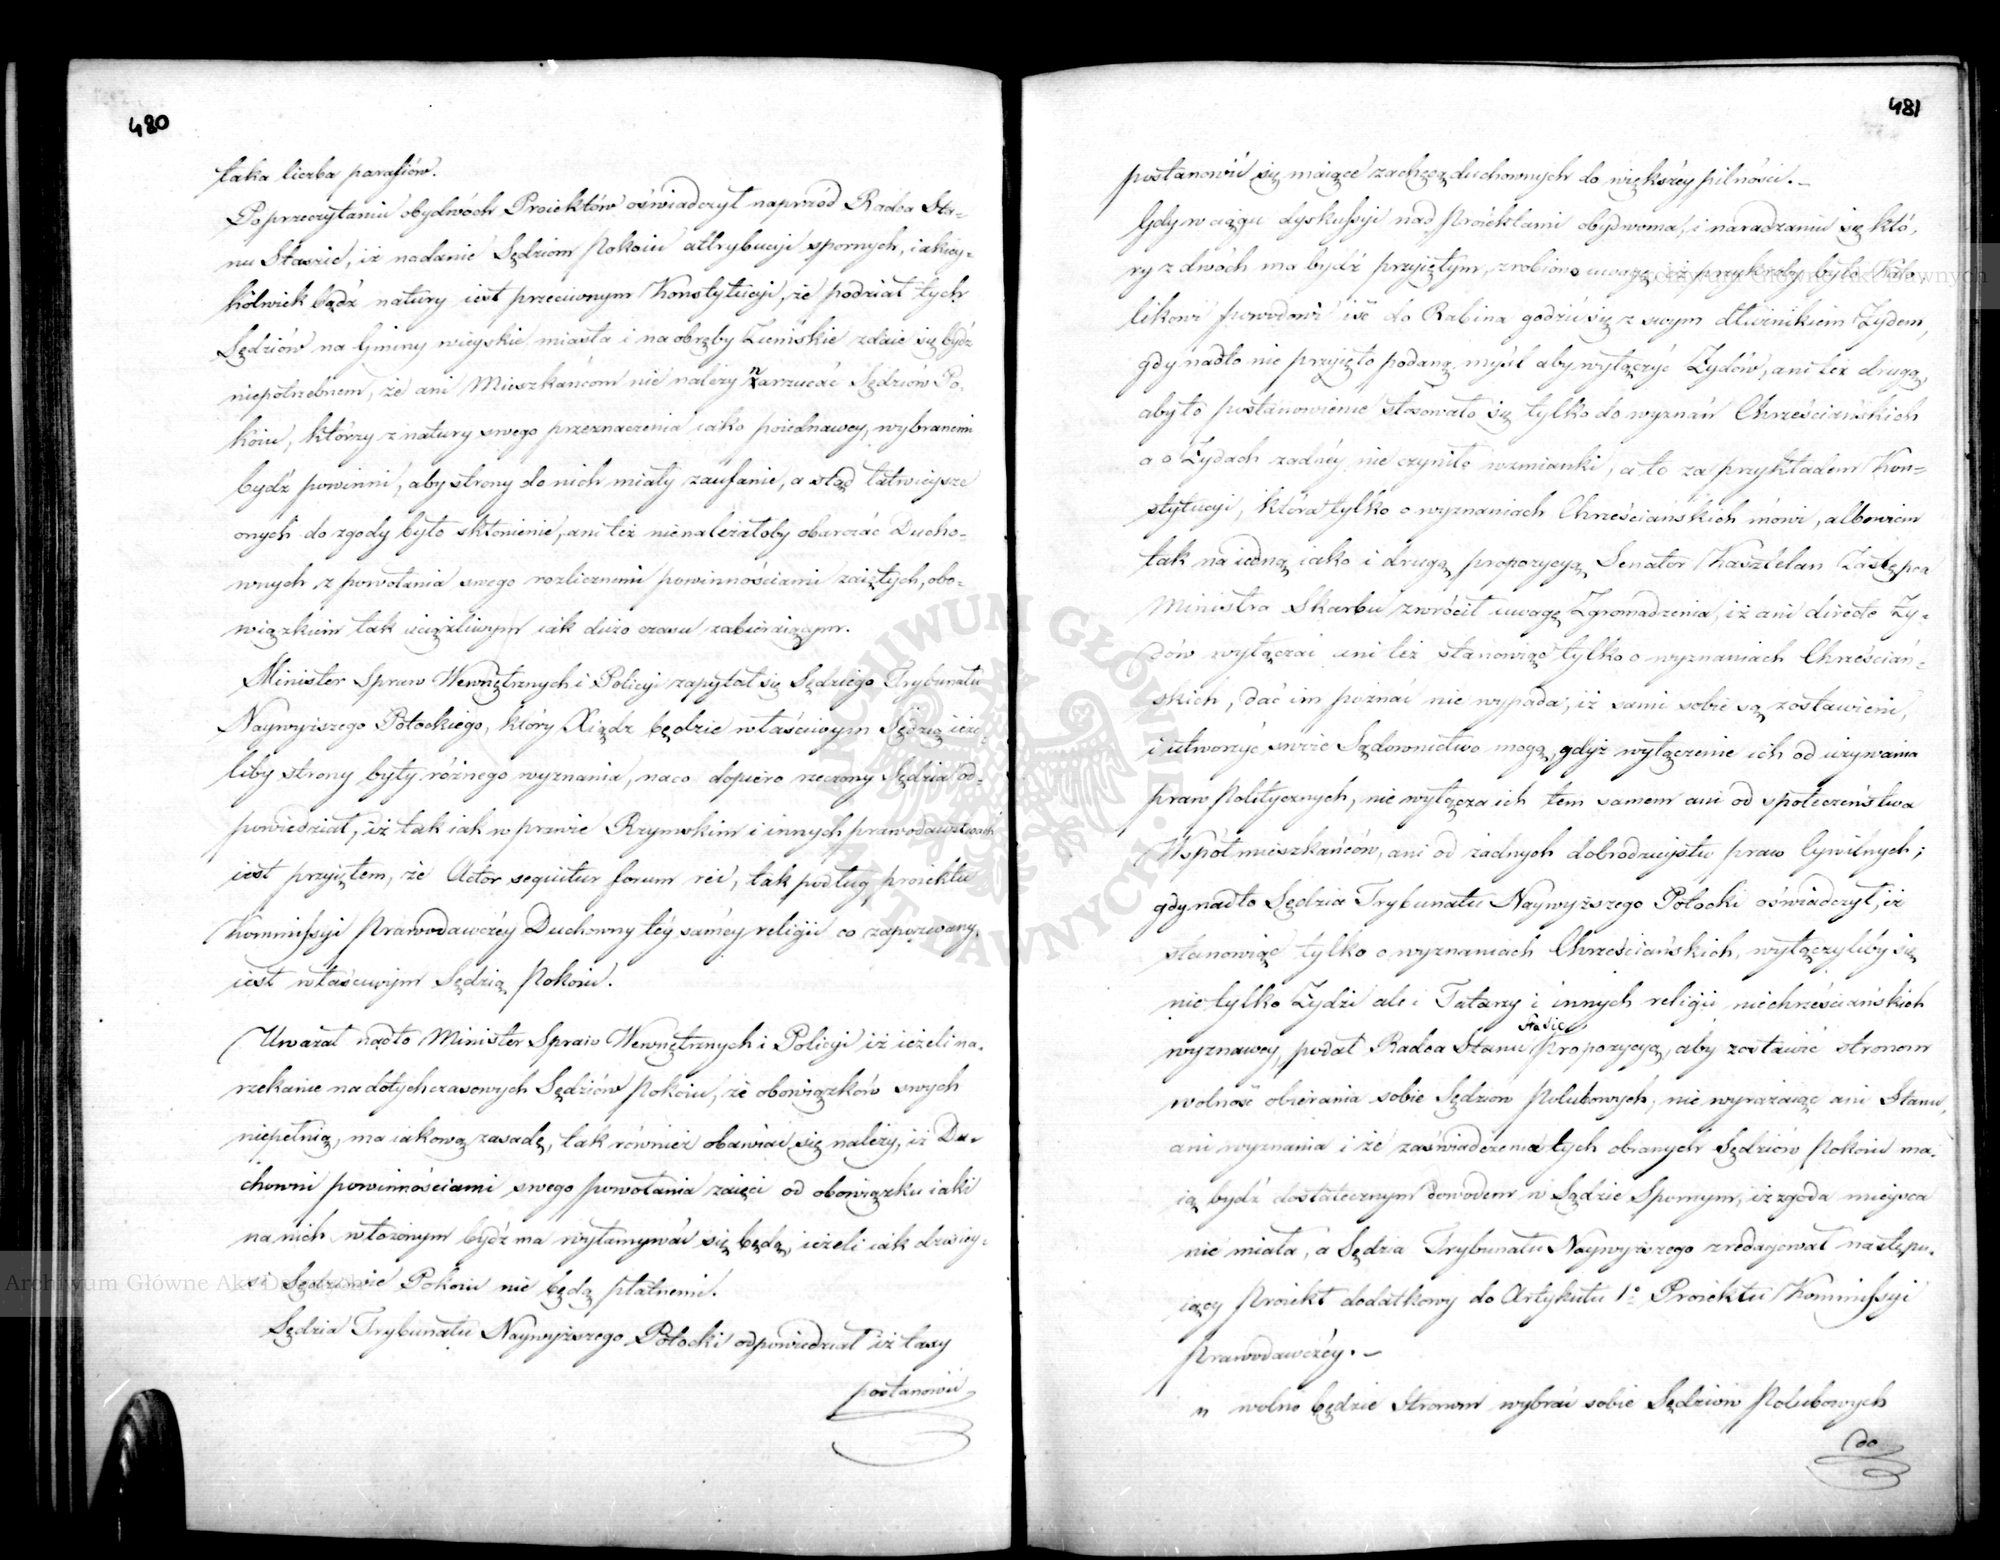 480
taka liczba parafiów.
Po przeczytaniu obydwóch Proiektów oświadczył naprzód Radca Sta-
nu Staszic, iż nadanie Sędziom Pokoiu attrybucyi spornych, iakiey-
kolwiek bądź natury iest przeciwnym Konstytucyi, że podział tych
Sędziów na Gminy wieyskie miasta i na obręby Ziemskie zdaie się bydź
niepotrzebnem, że ani Mieszkańcom nie należy narzucać Sędziów Po-
koiu, którzy z natury swego przeznaczenia iako poiednawcy, wybranemi
bydź powinni, aby strony do nich miały zaufanie, a stąd łatwieysze
onych do zgody było skłonienie, ani też nienależałoby obarczać Ducho-
wnych z powołania swego rozlicznemi powinnościami zaiętych, obo-
wiązkiem tak uciążliwym iak dużo czasu zabieraiącym.
Minister Spraw Wewnętrznych i Policyi zapytał się Sędziego Trybunału
Naywyższego Potockiego, który Xiądz będzie właściwym Sędzią ieże-
liby strony były różnego wyznania, na co dopiero rzeczony Sędzia od-
powiedział, iż tak iak w prawie Rzymskim i innych prawodawstwach
iest przyiętem, że Actor sequitur forum rei, tak podług proiektu
Kommissyi Prawodawczéy Duchowny téy saméy religii co zapozwany,
iest właściwym Sędzią Pokoiu.
Uważał nadto Minister Spraw Wewnętrznych i Policyi iż ieżeli na-
rzekanie na dotychczasowych Sędziów Pokoiu, że obowiązków swych
niepełnią, ma iakową zasadę, tak również obawiać się należy, iż Du-
chowni powinnościami swego powołania zaięci od obowiązku iaki
na nich włożonym bydź ma wyłamywać się będą, ieżeli iak dzisiey-
si Sędziowie Pokoiu nie będą płatnemi.
Sędzia Trybunału Naywyższego Potocki odpowiedział iż taxy
postanowić
481
postanowić się maiące zachęcą duchownych do większéy pilności.
Gdy w ciągu dyskussyi nad Proiektami obydwoma, i naradzaniu się któ-
ry z dwóch ma bydź przyiętym, zrobiono uwagę iż przykroby było Kato-
likowi powodowi iść do Rabina godzić się z swym dłużnikiem Żydem,
gdy nadto nie przyięto podaną myśl aby wyłączyć Żydów, ani też drugą,
aby to postanowienie stosowało się tylko do wyznań Chrześciańskich
a o Żydach żadnéy nie czyniło wzmianki, a to za przykładem Kon-
stytucyi, która tylko o wyznaniach Chrześciańskich mówi, albowiem
tak na iedną iako i drugą propozycyą Senator Kasztelan Zastępca
Ministra Skarbu zwrócił uwagę Zgromadzenia, iż ani directe Ży-
dów wyłączać ani też stanowiąc tylko o wyznaniach Chrześciań-
skich, dać im poznać nie wypada, iż sami sobie są zostawieni,
i utworzyć swoie Sądownictwo mogą, gdyż wyłączenie ich od używania
praw Politycznych, nie wyłącza ich tem samem ani od społeczeństwa
Współmieszkańców, ani od żadnych dobrodzieystw praw Cywilnych;
gdy nadto Sędzia Trybunału Naywyższego Potocki oświadczył, iż
stanowiąc tylko o wyznaniach Chrześciańskich, wyłączyliby się
nie tylko Żydzi ale i Tatarzy i innych religii niechrześciańskich
wyznawcy, podał Radca Stanu Staszic propozycyą, aby zostawić stronom
wolność obierania sobie Sędziów Polubowych, nie wyrażaiąc ani Stanu,
ani wyznania i że zaświadczenia tych obranych Sędziów Pokoiu ma-
ią bydź dostatecznym dowodem w Sądzie Spornym, iż zgoda mieysca
nie miała, a Sędzia Trybunału Naywyższego zredagował następu-
iący Proiekt dodatkowy do Artykułu 1° Proiektu Kommissyi
Prawodawczéy.
„ wolno będzie Stronom wybrać sobie Sędziów Polubowych
do
ARCHIWUM GŁÓWNE AKT DAWNYCH
Archiwum Główne Akt Dawnych
Archiwum Główne Akt Dawnych